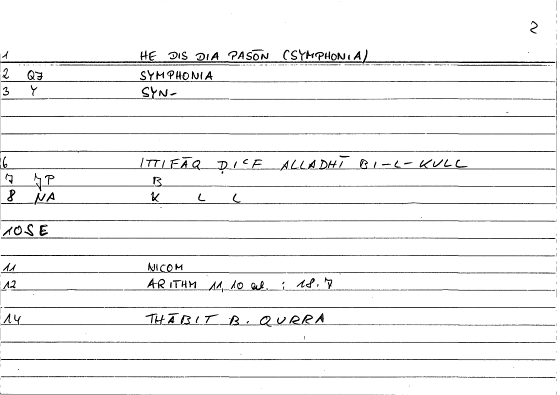 2
1 HE DIS DIA PASŌN (SYMPHONIA)
2 Q7 SYMPHONIA
3 Y SYN-
6 ITTIFĀQ ḌIʿF ALLADHĪ BI-L-KULL
7 JP B
8 NA K L L
10SE
11 NICOM
12 ARITHM 11,10 al. : 18.7
14 THĀBIT B. QURRA